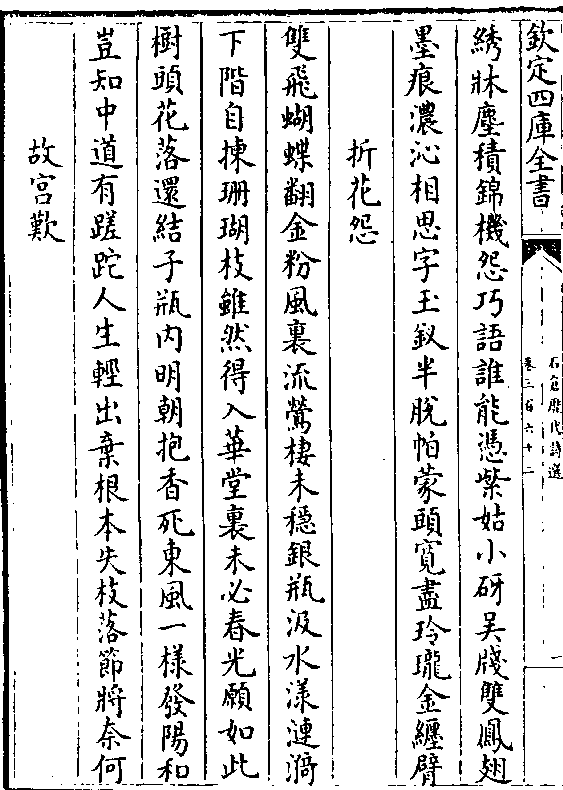 欽定四庫全書
石倉歴代詩選
卷三百六十二
綉牀塵積錦機怨巧語誰能憑紫姑小研吳牋雙鳳翅
墨痕濃沁相思字玉釵半脫帕蒙頭寛盡玲瓏金纏臂
折花怨
雙飛蝴蝶翻金粉風裏流鶯棲未穩銀瓶汲水漾漣漪
下階自揀珊瑚枝雖然得入華堂裏未必春光願如此
樹頭花落還結子瓶内明朝抱香死東風一樣發陽和
豈知中道有蹉跎人生輕出棄根本失枝落節將奈何
故宫歎